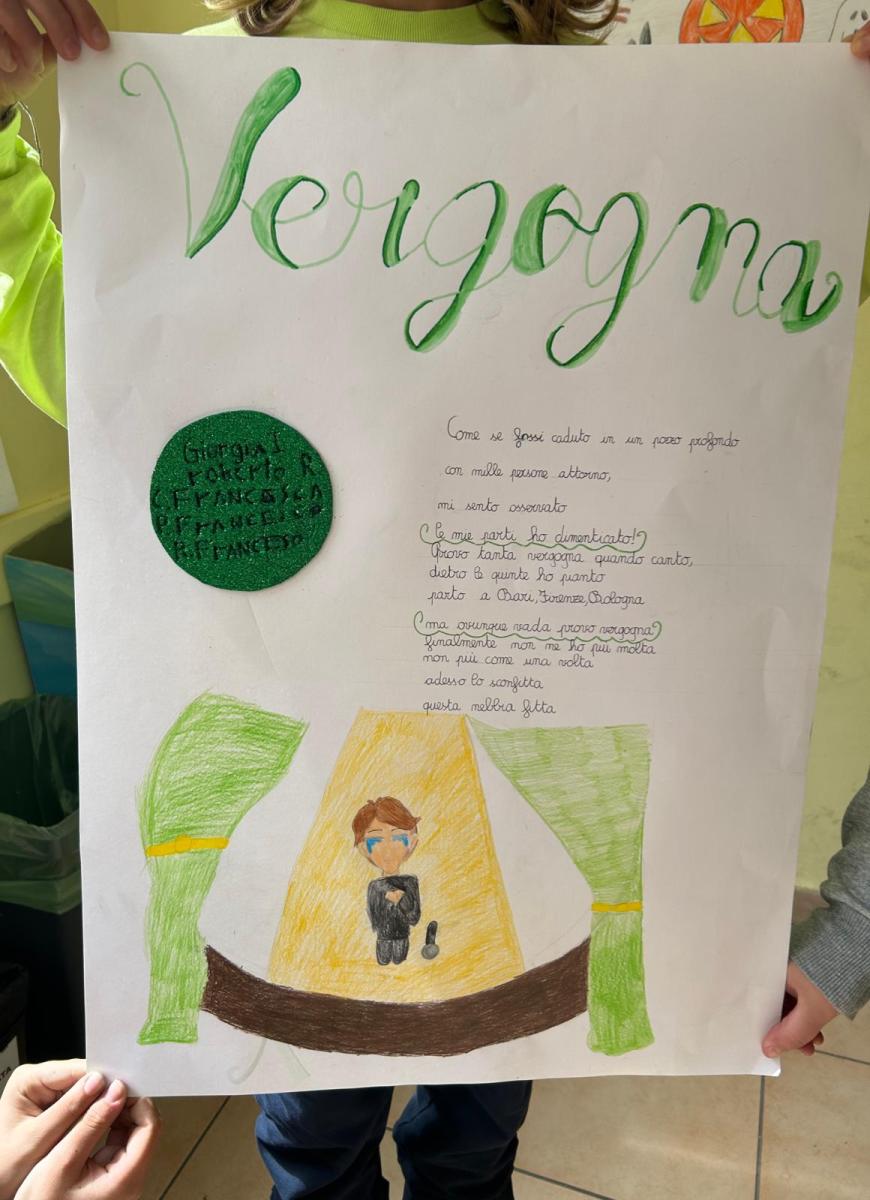 Vergogna
Giorgia I
roberto R
C. FRANCESCA
P. FRANCESCO
R. FRANCESO
Come se fossi caduto in un pozzo profondo
con mille persone attorno,
mi sento osservato
(Le mie parti ho dimenticato!)
Provo tanta vergogna quando canto,
dietro le quinte ho pianto
parto a Bari, Firenze, Bologna
(ma ovunque vada provo vergogna)
finalmente non ne ho più molta
non più come una volta
adesso lo sconfitta
questa nebbia fitta